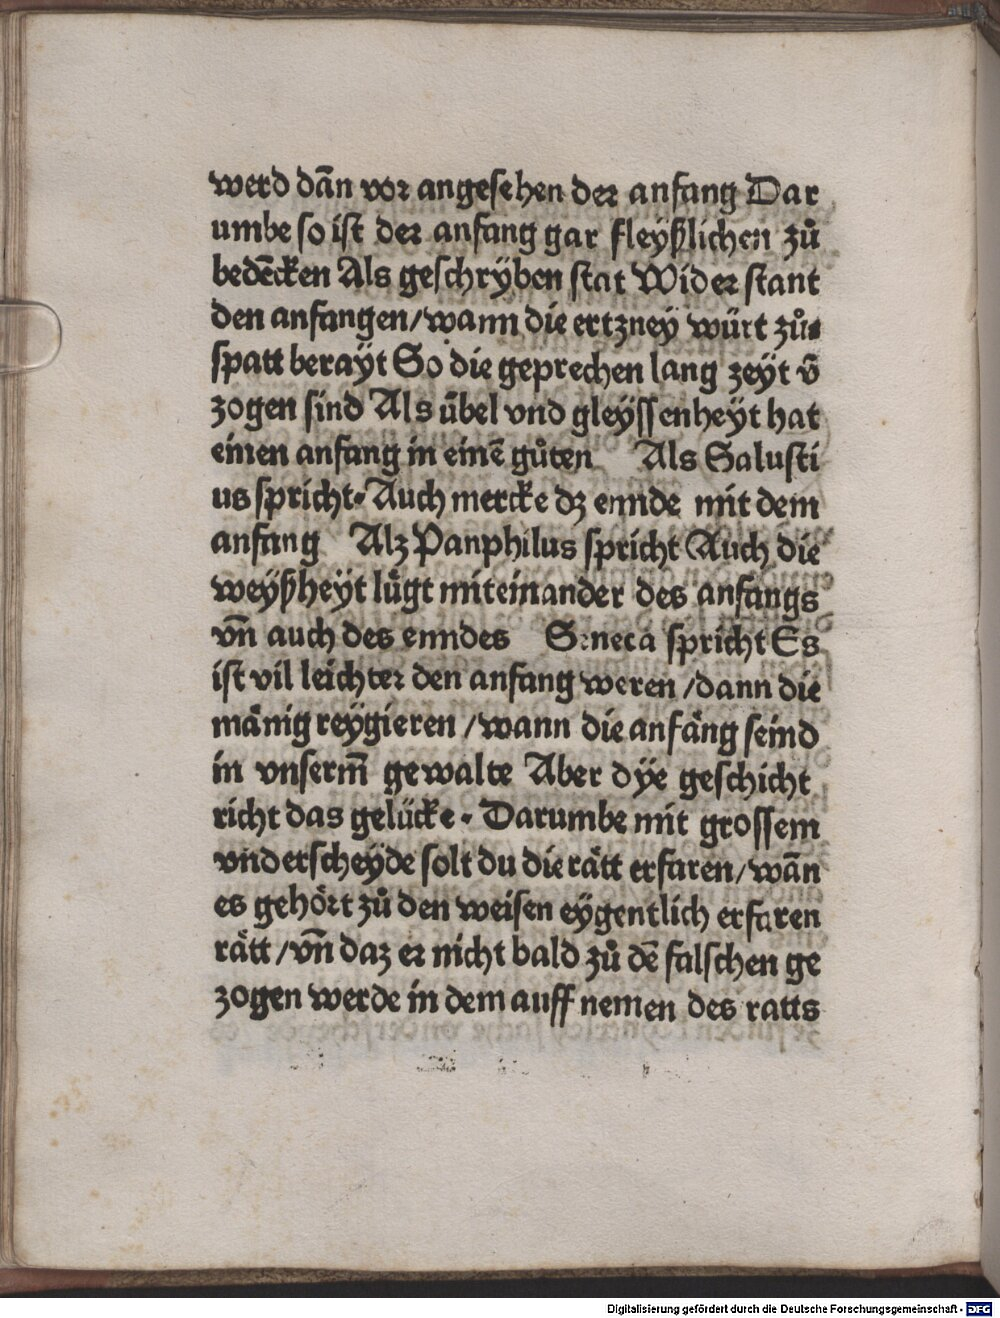 werd dān vor angesehen der anfang Dar
umbe so ist der anfang gar fleyßlichen zů
bedēcken Als geschrÿben stat Wider stant
den anfangen/wann die ertzneÿ würt zů⸗
spatt beraÿt So die geprechen lang zeÿt v̄
zogen sind Als übel vnd gleÿssenheÿt hat
einen anfang in einē gůten Als Salusti
us spricht. Auch mercke dz ennde mit dem
anfang Alz Panphilus spricht Auch die
weÿßheÿt lůgt miteinander des anfangs
vn̄ auch des enndes Seneca spricht Es
ist vil leichter den anfang weren /dann die
mänig reÿgieren /wann die anfäng seind
in vnserm̄ gewalte Aber dÿe geschicht
richt das gelücke. Darumbe mit grossem
vnderscheÿde solt du die rätt erfaren/wān
es gehört zů den weisen eÿgentlich erfaren
rätt /vn̄ daz er nicht bald zů dē falschen ge
zogen werde in dem auff nemen des ratts
Digitalisierung gefördert durch die Deutsche Forschungsgemeinschaft - DFG